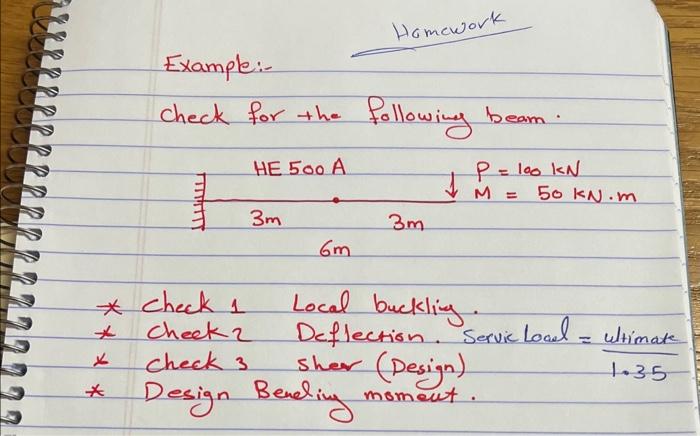 Homework
Example:-
check for the following beam.
HE 500 A
P = 100 kN
M = 50 kN.m
3m 3m
6m
* check 1 Local buckling.
* check 2 Deflection. Servic Load = ultimate / 1.35
* check 3 sher (Design)
* Design Bending moment.